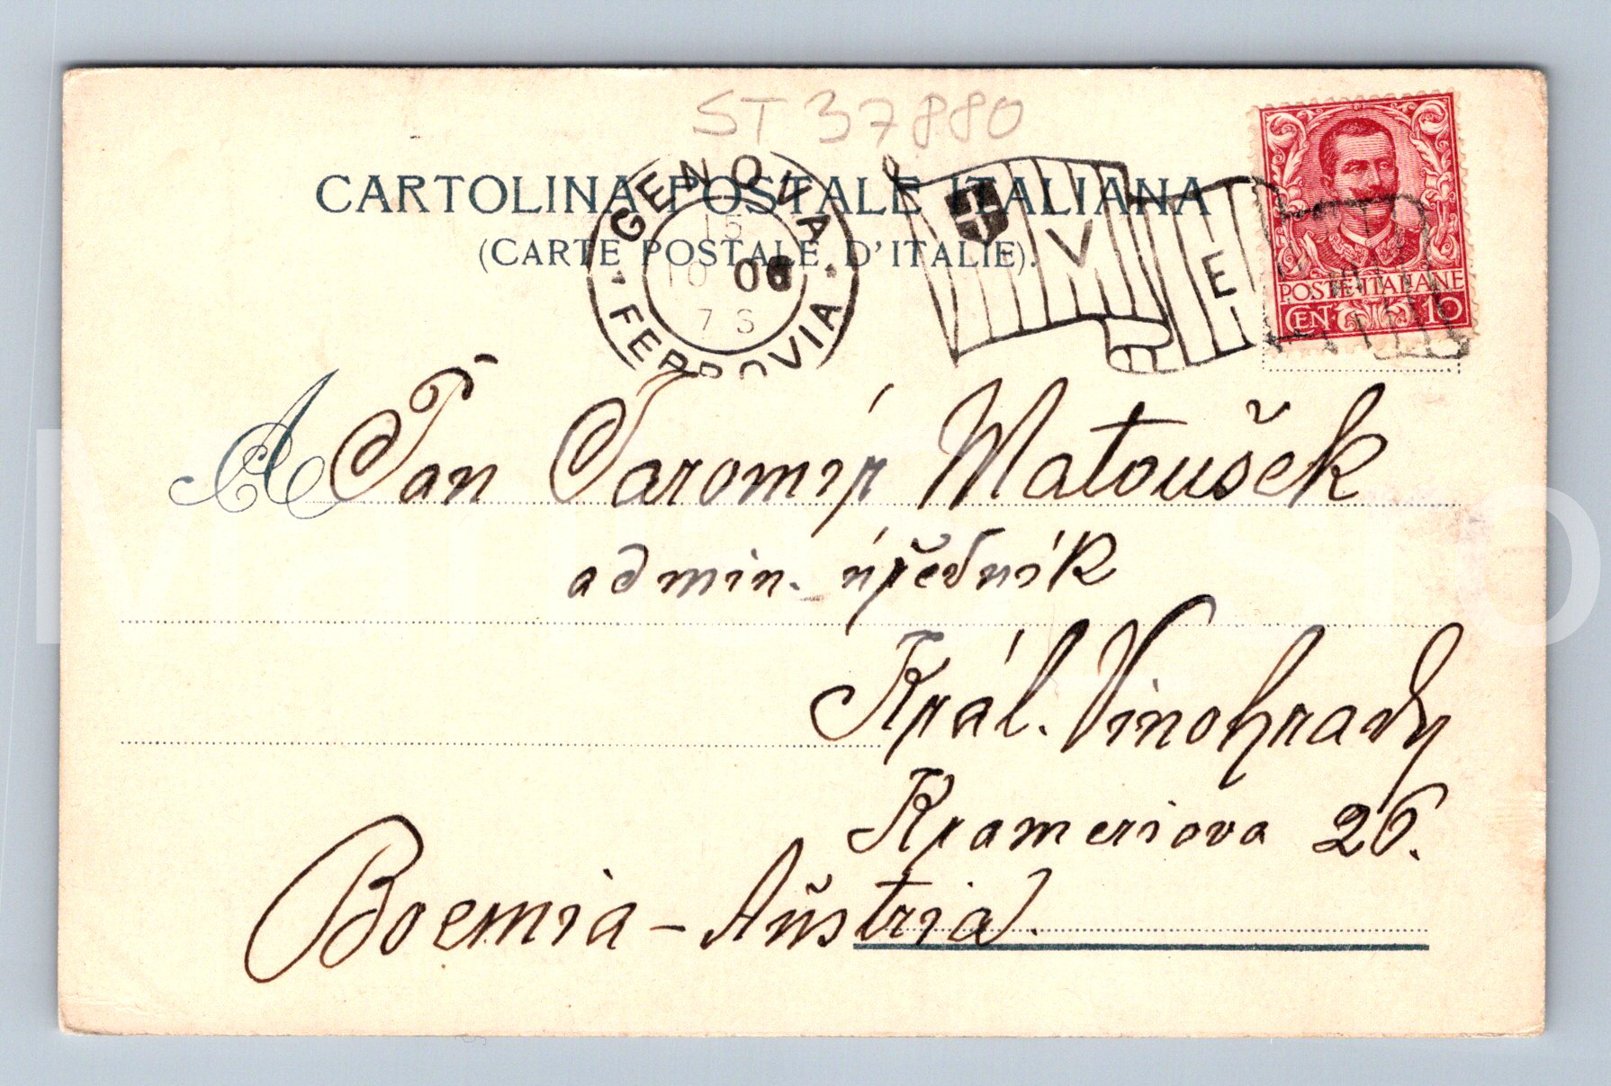 ST 37880
CARTOLINA POSTALE ITALIANA
(CARTE POSTALE D'ITALIE).
GENOVA
15
10 06
7 S
FERROVIA
V E
POSTE ITALIANE
CEN. 10
A Pan Jaromír Matoušek
admin. úředník
Král. Vinohrady
Krameriova 26.
Boemia - Aŭstria.